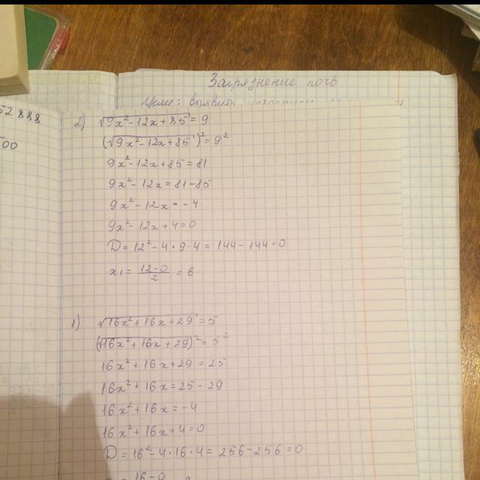 Загрязнение почв
Цель: выявить
52888
500
2) √9x²-12x+85 = 9
(√9x²-12x+85)² = 9²
9x²-12x+85 = 81
9x²-12x = 81-85
9x²-12x = -4
9x²-12x+4 = 0
D = 12²-4·9·4 = 144-144 = 0
x₁ = (12-0)/2 = 6
1) √16x²+16x+29 = 5
(√16x²+16x+29)² = 5²
16x²+16x+29 = 25
16x²+16x = 25-29
16x²+16x = -4
16x²+16x+4 = 0
D = 16²-4·16·4 = 256-256 = 0
16-0